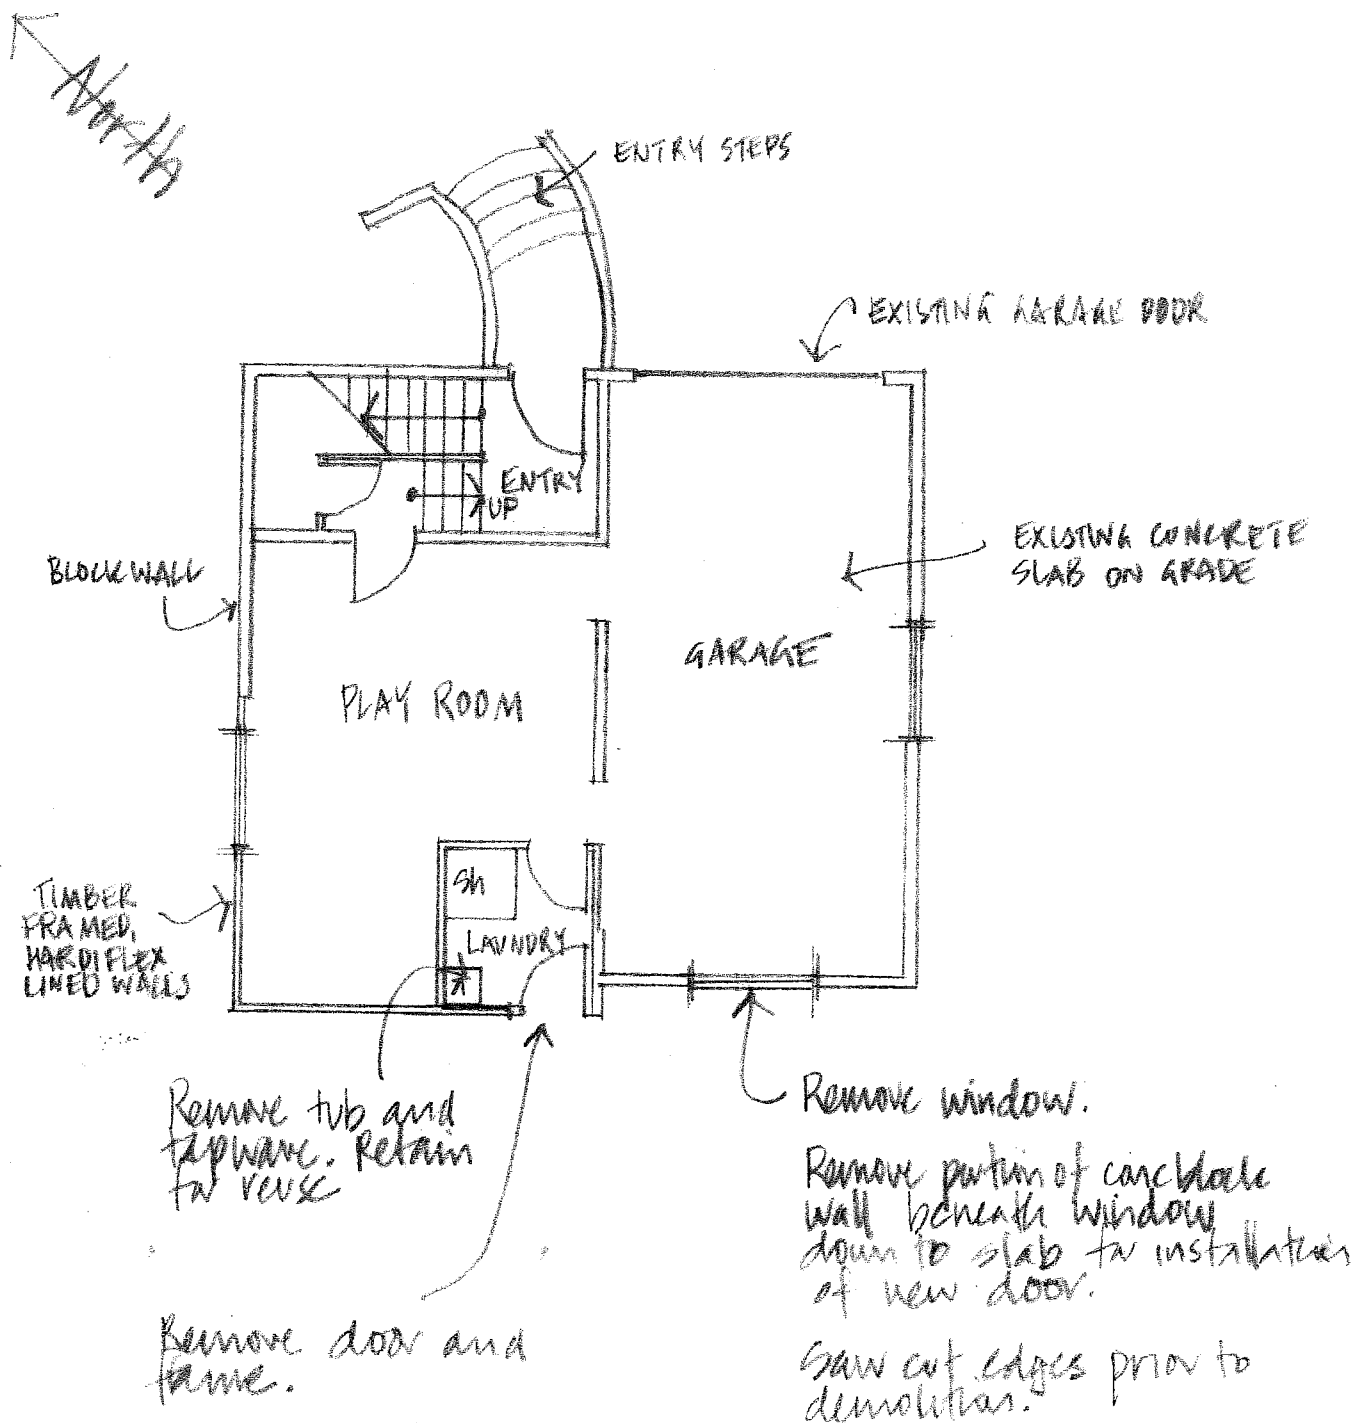 North
ENTRY STEPS
EXISTING GARAGE DOOR
ENTRY
UP
EXISTING CONCRETE
SLAB ON GRADE
BLOCKWALL
GARAGE
PLAY ROOM
Sh
LAUNDRY
TIMBER
FRAMED,
HARDIFLEX
LINED WALLS
Remove tub and
tapware. Retain
for reuse
Remove door and
frame.
Remove window.
Remove portion of conc block
wall beneath window
down to slab for installation
of new door.
Saw cut edges prior to
demolition.